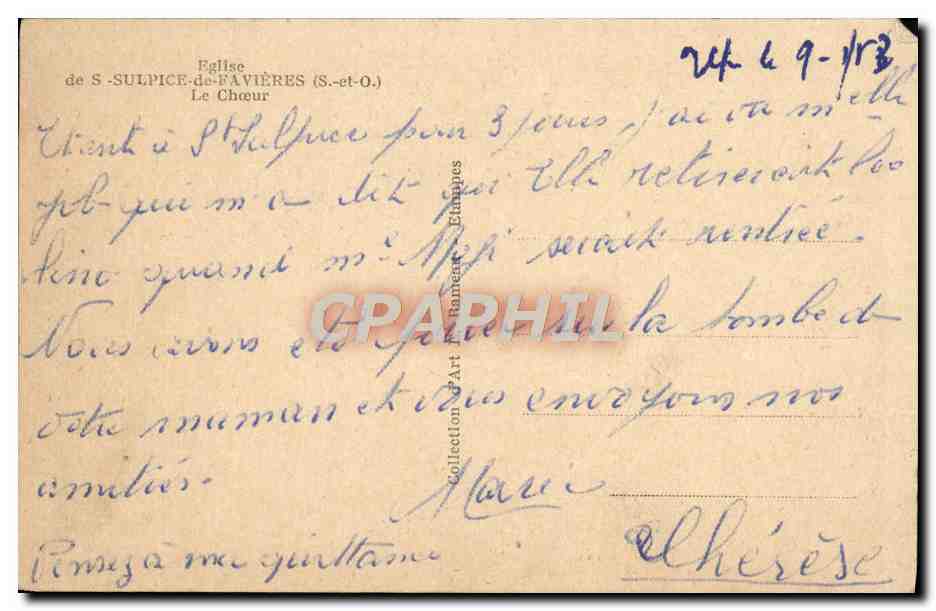 Eglise
de S-SULPICE-de-FAVIÈRES (S.-et-O.)
Le Chœur
le 9-
Etant à St Sulpice pour 3 jours, j'ai vu Melle
qui m'a dit qu'Elle retirerait
quand Me serait rentrée.
Nous avons été prier sur la tombe de
votre maman et vous envoyons nos
amitiés.
Marie
Thérèse
Pensez à ma quittance
Collection d'Art Rameau Etampes
CPARPHIL